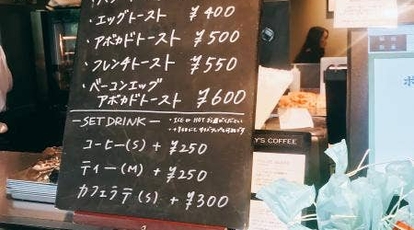 ・エッグトースト ¥400
・アボカドトースト ¥500
・フレンチトースト ¥550
・ベーコンエッグ
アボカドトースト ¥600
-SET DRINK-
コーヒー(S) + ¥250
ティー(M) + ¥250
カフェラテ(S) + ¥300
Y'S COFFEE